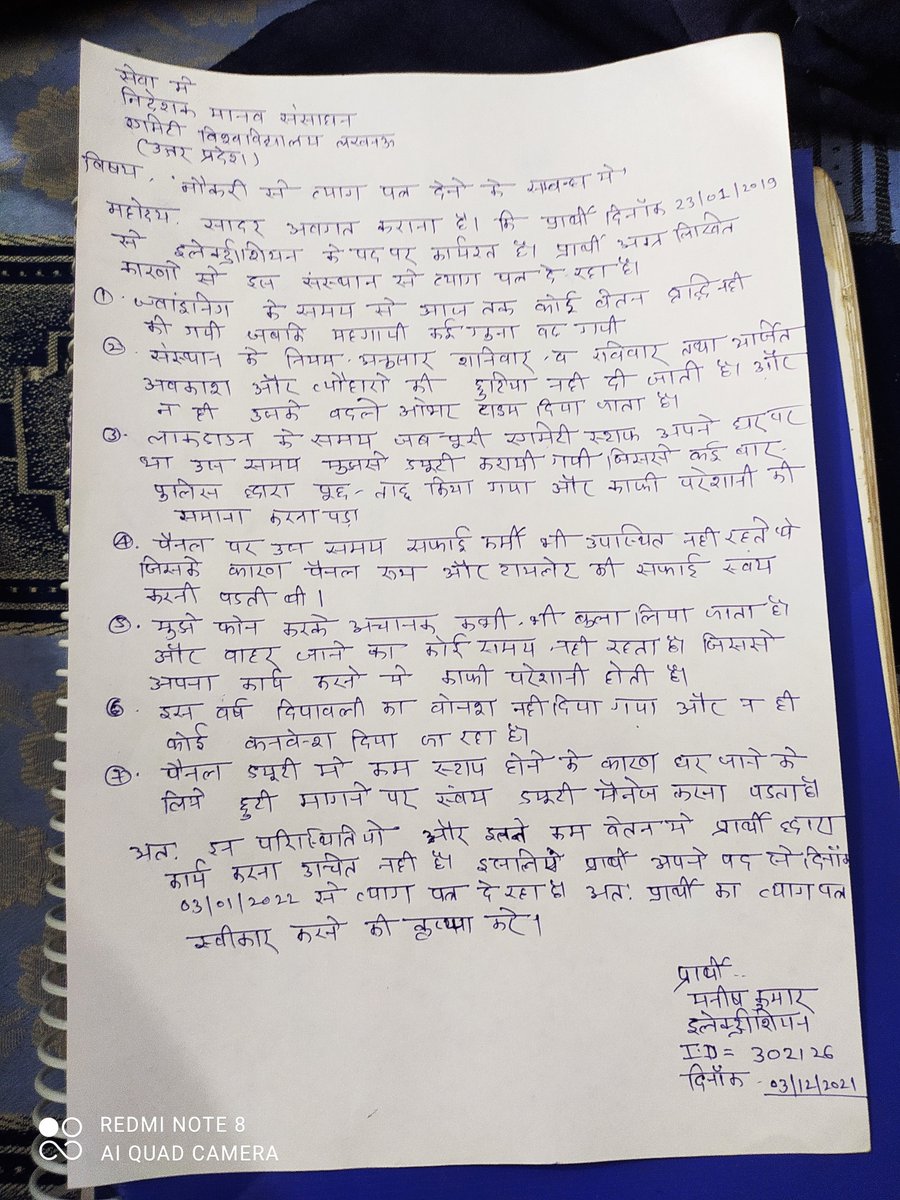 सेवा मे
निदेशक मानव संसाधन
एमिटी विश्वविद्यालय लखनऊ
(उत्तर प्रदेश)
विषय. "नौकरी से त्याग पत्र देने के सम्बन्ध मे"
महोदय. सादर अवगत कराना है। कि प्रार्थी दिनाँक 23/01/2019
से इलेक्ट्रीशियन के पद पर कार्यरत है। प्रार्थी अग्र लिखित
कारणो से इस संस्थान से त्याग पत्र दे रहा है।
① ज्वाइंनिग के समय से आज तक कोई वेतन व्रद्धि नही
की गयी जबकि महगायी कई गुना बढ गयी
② संस्थान के नियम अनुसार शनिवार व रविवार तथा अर्जित
अवकाश और त्यौहारो की छुटिया नही दी जाती है। और
न ही उसके बदले ओभर टाइम दिया जाता है।
③ लाकडाउन के समय जब पूरी एमिटी स्टाफ अपने घर पर
था उस समय मुझसे ड्यूटी करायी गयी जिससे कई बार
पुलिस द्वारा पूछ-ताछ किया गया और काफी परेशानी की
समाना करना पडा
④ पैनल पर उस समय सफाई कर्मी भी उपस्थित नही रहते थे
जिसके कारण पैनल रूम और टायलेट की सफाई स्वंय
करनी पडती थी।
⑤ मुझे फोन करके अचानक कभी-भी बुला लिया जाता है।
और बाहर जाने का कोई समय नही रहता है। जिससे
अपना कार्य करने मे काफी परेशानी होती है।
⑥ इस वर्ष दिपावली का वोनश नही दिया गया और न ही
कोई कनवेन्श दिया जा रहा है।
⑦ पैनल ड्यूटी मे कम स्टाप होने के कारण घर जाने के
लिये छुटी मागने पर स्वंय ड्यूटी मैनेज करना पडता है
अत. इन परिस्थितियो और इतने कम वेतन मे प्रार्थी द्वारा
कार्य करना उचित नही है। इसलिये प्रार्थी अपने पद से दिनाँक
03/01/2022 से त्याग पत्र दे रहा है। अत. प्रार्थी का त्याग पत्र
स्वीकार करने की कृप्या करे।
प्रार्थी..
मनीष कुमार
इलेक्ट्रीशियन
I.D = 302126
दिनाँक - 03/12/2021
REDMI NOTE 8
AI QUAD CAMERA